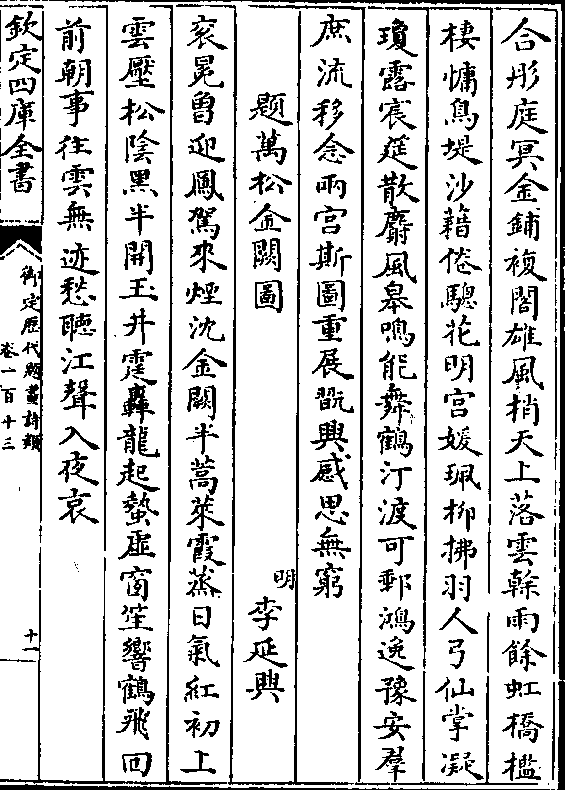 合彤庭冥金鋪複閣雄風梢天上落雲榦雨餘虹橋檻
棲慵鳥堤沙藉倦驄花明宮媛珮柳拂羽人弓仙掌凝
瓊露宸筵散麝風皋鳴能舞鶴汀渡可郵鴻逸豫安羣
庶流移念兩宮斯圖重展翫興感思無窮
題萬松金闕圖
明 李延興
衮冕曾迎鳳駕來煙沈金闕半蒿萊霞蒸日氣紅初上
雲壓松陰黑半開玉井霆轟龍起蟄虛窗笙響鶴飛回
前朝事往雲無迹愁聽江聲入夜哀
欽定四庫全書
御定歷代題畫詩類
卷一百十三
十一